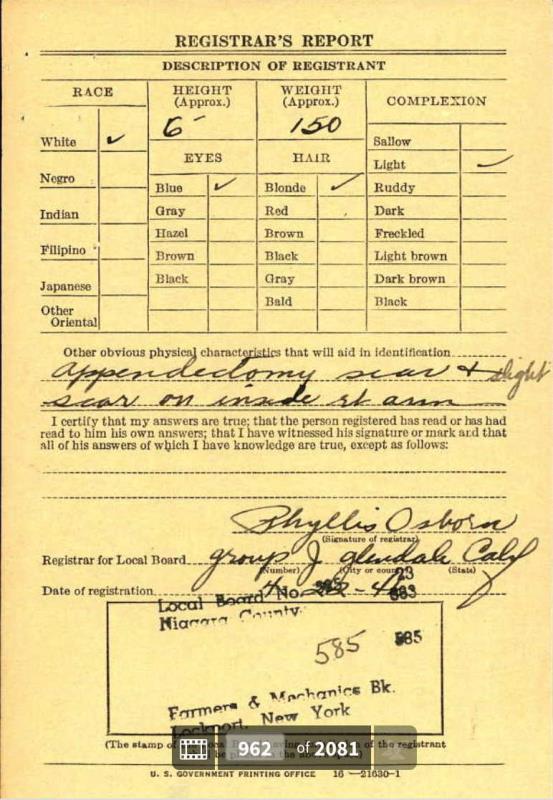 REGISTRAR'S REPORT
DESCRIPTION OF REGISTRANT
RACE
HEIGHT
(Approx.)
WEIGHT
(Approx.)
COMPLEXION
6'
150
White ✓
Negro
Indian
Filipino
Japanese
Other
Oriental
EYES
Blue ✓
Gray
Hazel
Brown
Black
HAIR
Blonde ✓
Red
Brown
Black
Gray
Bald
Sallow
Light ✓
Ruddy
Dark
Freckled
Light brown
Dark brown
Black
Other obvious physical characteristics that will aid in identification
Appendectomy scar + slight
scar on inside rt arm
I certify that my answers are true; that the person registered has read or has had
read to him his own answers; that I have witnessed his signature or mark and that
all of his answers of which I have knowledge are true, except as follows:
Phyllis Osborn
(Signature of registrar)
Registrar for Local Board group J glendale Calif
(Number) (City or county) (State)
Date of registration
Local Board No.
Niagara County
585
585
Farmers & Mechanics Bk.
Lockport, New York
(The stamp of of the registrant
962 of 2081
U. S. GOVERNMENT PRINTING OFFICE 16—21630-1